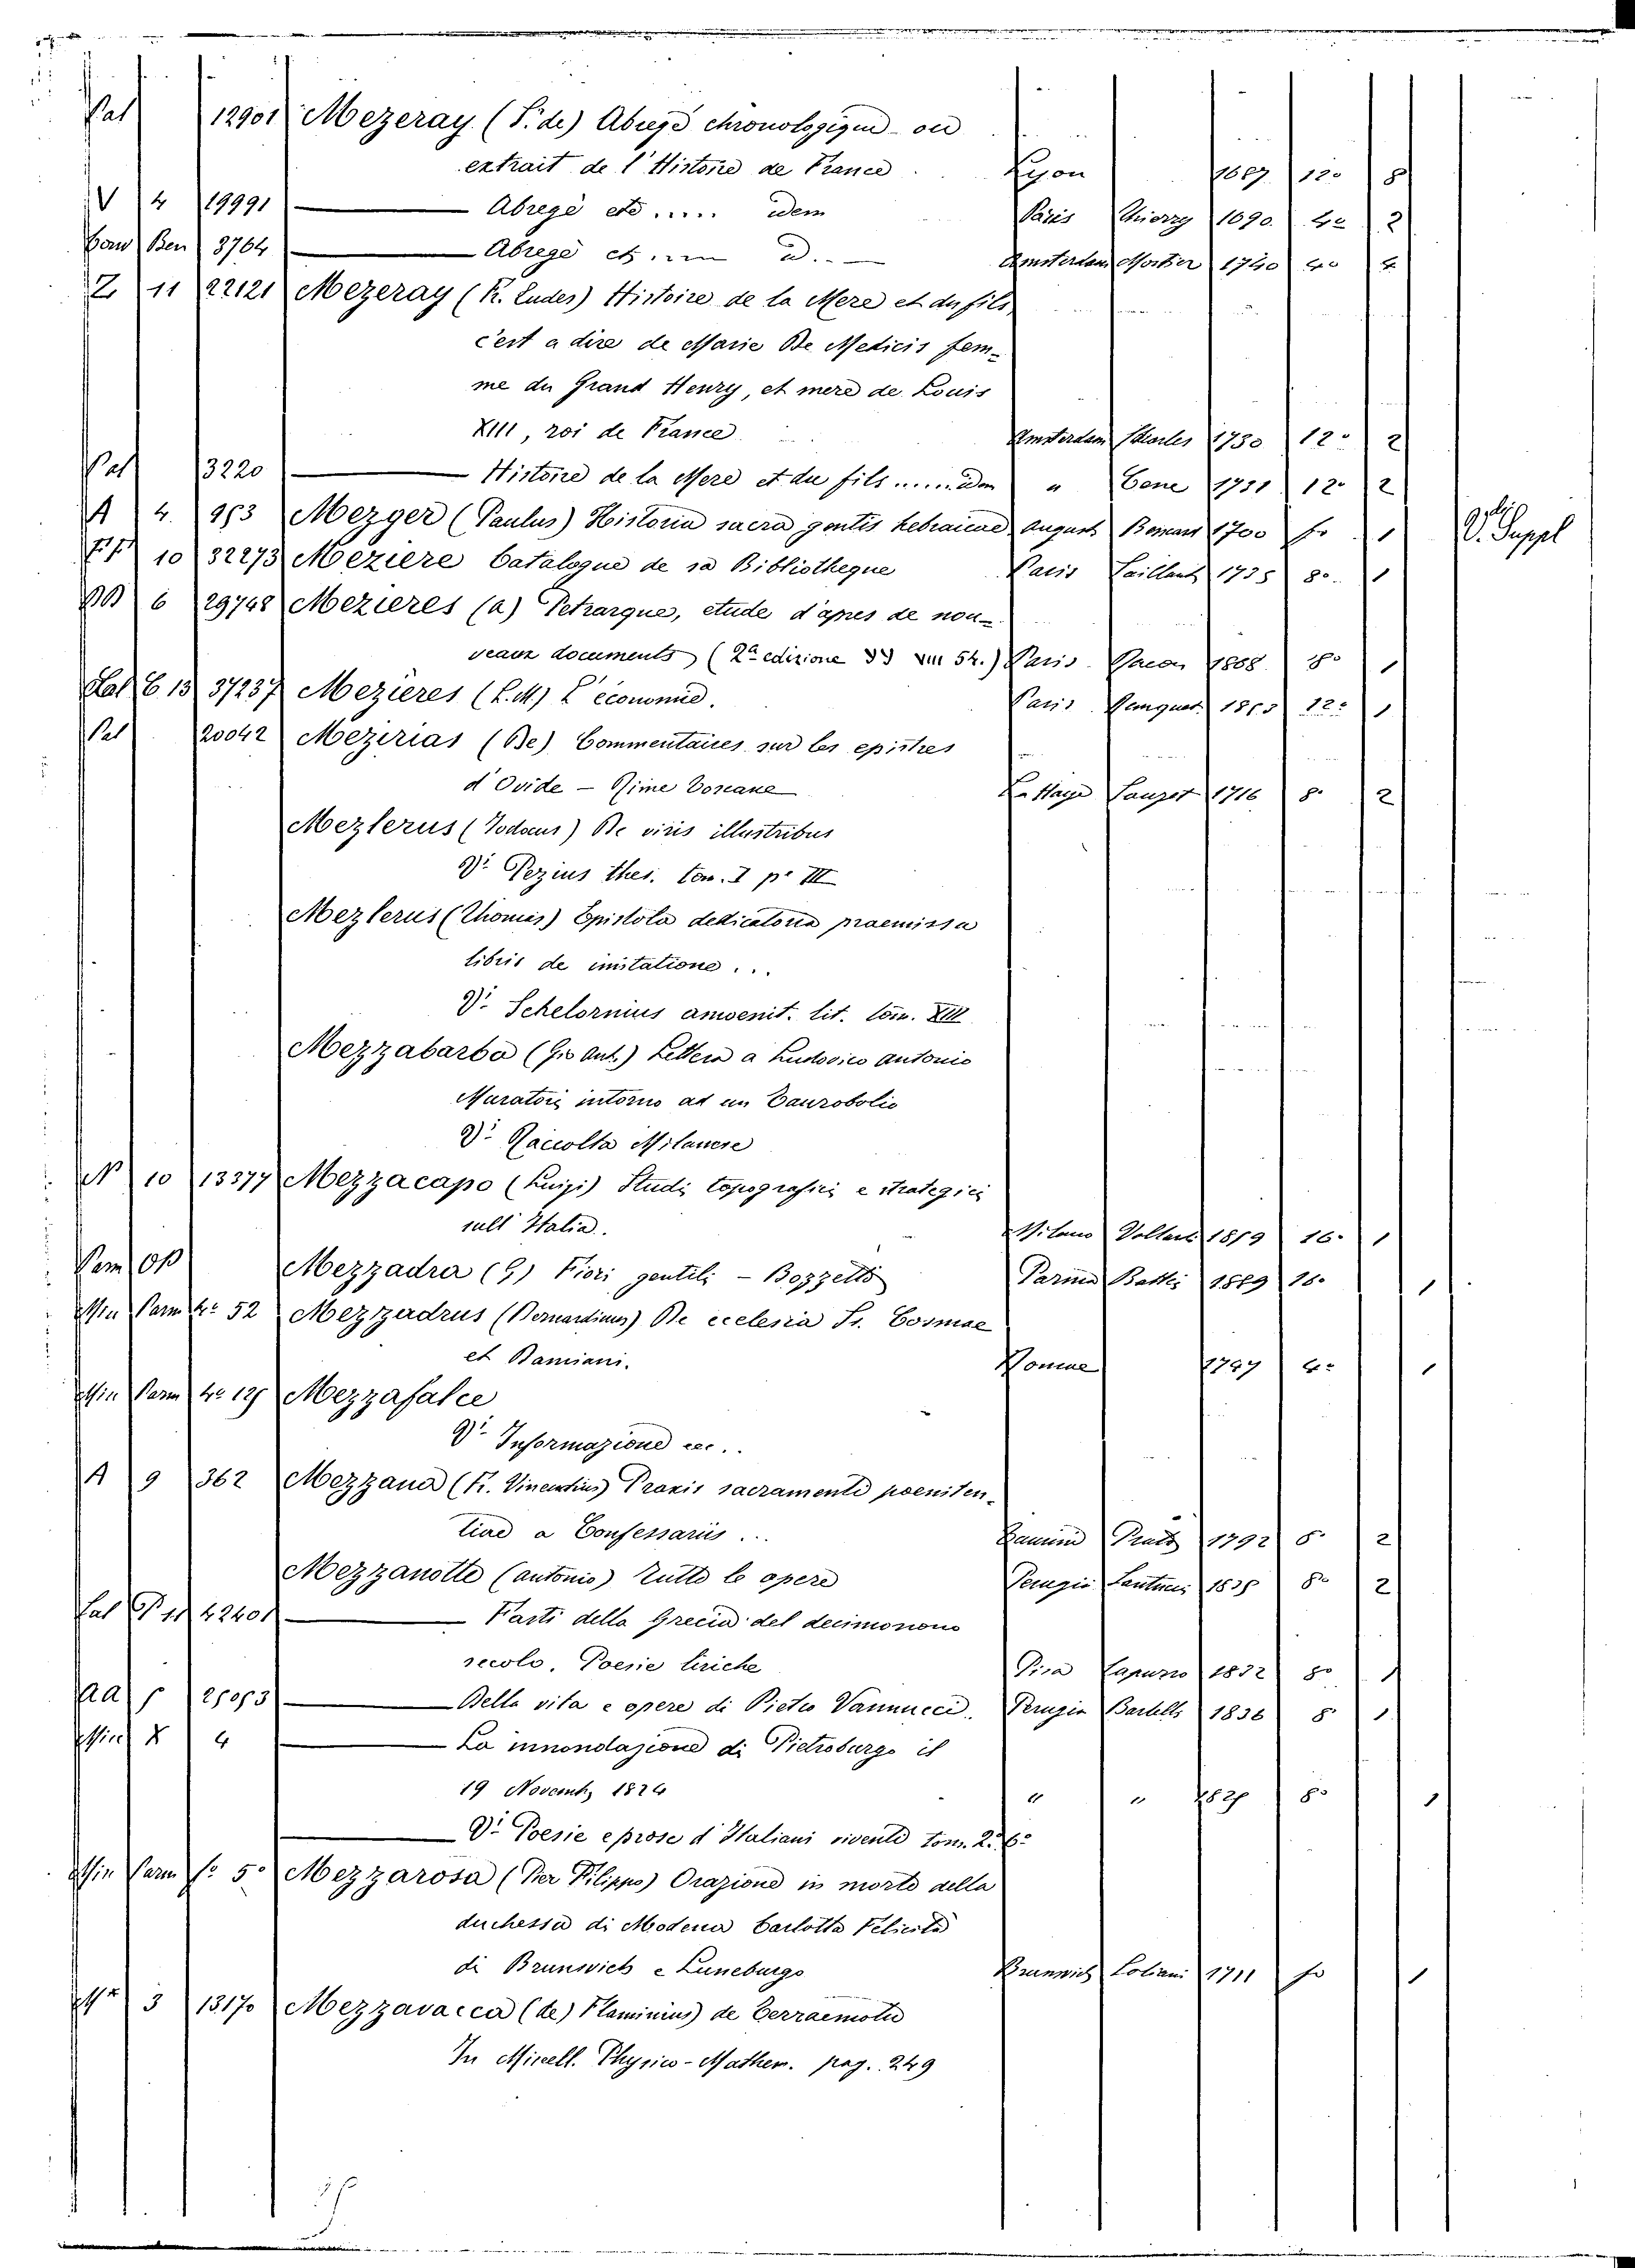 Pal 12901 Mezeray (F. de) Abregé chronologique ou
extrait de l'Histoire de France Lyon 1687 12° 8
V 4 19991 — Abregé etc ..... idem Paris Thierry 1690 4° 2
Conv Ben 3764 — Abregé et id. — Amsterdam Mortier 1740 4° 4
Z 11 22121 Mezeray (F. Eudes) Histoire de la Mere et du fils
c'est a dire de Marie De Medicis fem-
me du Grand Henry, et mere de Louis
XIII, roi de France Amsterdam Charles 1730 12° 2
Pal 3220 — Histoire de la Mere et du fils ..... idem " Cene 1731 12° 2
A 4 Mezger (Paulus) Historia sacra gentis hebraicae August 1700 fo 1 V. Suppl
10 32273 Meziere Catalogue de sa Bibliotheque Paris Saillant 1735 8° 1
BB 6 29748 Mezieres (A) Petrarque, etude d'apres de nou-
veaux documents (2ª edizione VIII 54.) Paris 1868 8° 1
Pal E 13 37237 Mezieres (L. M) L'economie. Paris 12° 1
Pal 20042 Mezirias (De) Commentaires sur les epistres
d'Ovide — Rime Toscane La Haye Sauzet 1716 8° 2
Mezlerus (Jodocus) De viris illustribus
V: Pezius thes. tom. I p. III
Mezlerus (Thomas) Epistola dedicatoria praemissa
libris de imitatione ...
V: Schelornius amoenit. lit. tom. XIII
Mezzabarba (Gio Ant.) Lettera a Ludovico Antonio
Muratori intorno ad un Taurobolio
V: Raccolta Milanese
N 10 13377 Mezzacapo (Luigi) Studi topografici e strategici
sull'Italia. Milano Vallardi 1859 16° 1
Parm Op Mezzadra (G) Fiori gentili — Bozzetto Parma Battei 1889 16° 1
Min Parm 4° 52 Mezzadrus (Bernardinus) De ecclesia Ss. Cosmae
et Damiani. Romae 1747 4° 1
Min Parm 4° Mezzafalce
V: Informazione ec..
A 9 362 Mezzana (F. Vincentius) Praxis sacramenti poeniten-
tiae a Confessariis ... 1792 8° 2
Mezzanotte (Antonio) Tutte le opere Perugia Santucci 8° 2
42401 — Fasti della Grecia del decimonono
secolo. Poesie liriche Pisa Capurro 1832 8° 1
AA — Della vita e opere di Pietro Vannucci. Perugia Bartelli 1836 8° 1
X 4 — La innondazione di Pietroburgo il
19 Novemb, 1824 " " 8° 1
— V: Poesie e prose d'Italiani viventi tom. 2.° 6°
Min Parm f: 5° Mezzarosa (Pier Filippo) Orazione in morte della
duchessa di Modena Carlotta Felicita
di Brunswich e Luneburgo Brunswich 1711 fo 1
3 13170 Mezzavacca (de) Flaminius) de Terraemotu
In Miscell. Physico-Mathem. pag. 249